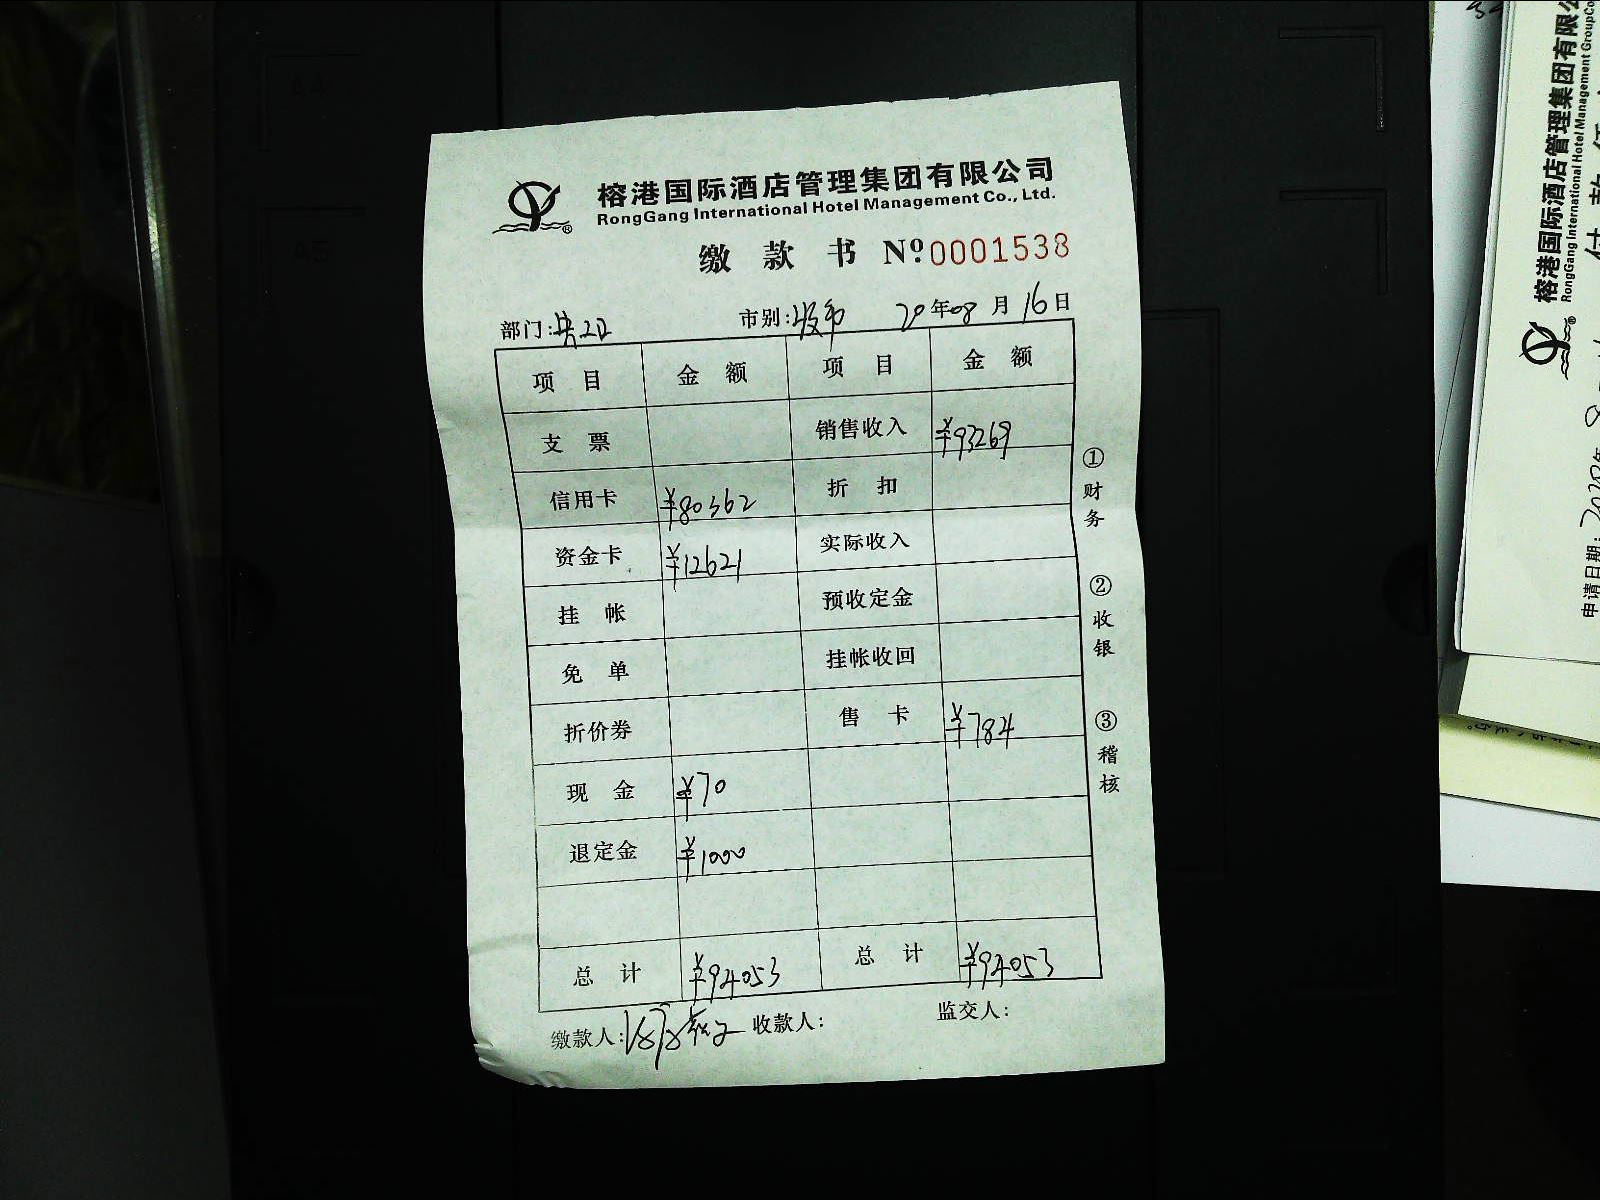 榕港国际酒店管理集团有限公司
RongGang International Hotel Management Co., Ltd.
缴款书 Nº 0001538
部门: 市别: 20年08月16日
项目 金额 项目 金额
支票 销售收入 ¥93269
信用卡 ¥80362 折扣
资金卡 ¥12621 实际收入
挂帐 预收定金
免单 挂帐收回
折价券 售卡 ¥784
现金 ¥70
退定金 ¥1000
总计 ¥94053 总计 ¥94053
缴款人: 收款人: 监交人:
①财务 ②收银 ③稽核
榕港国际酒店管理集团有限公
RongGang International Hotel Management GroupCo
申请日期:
A4
A5